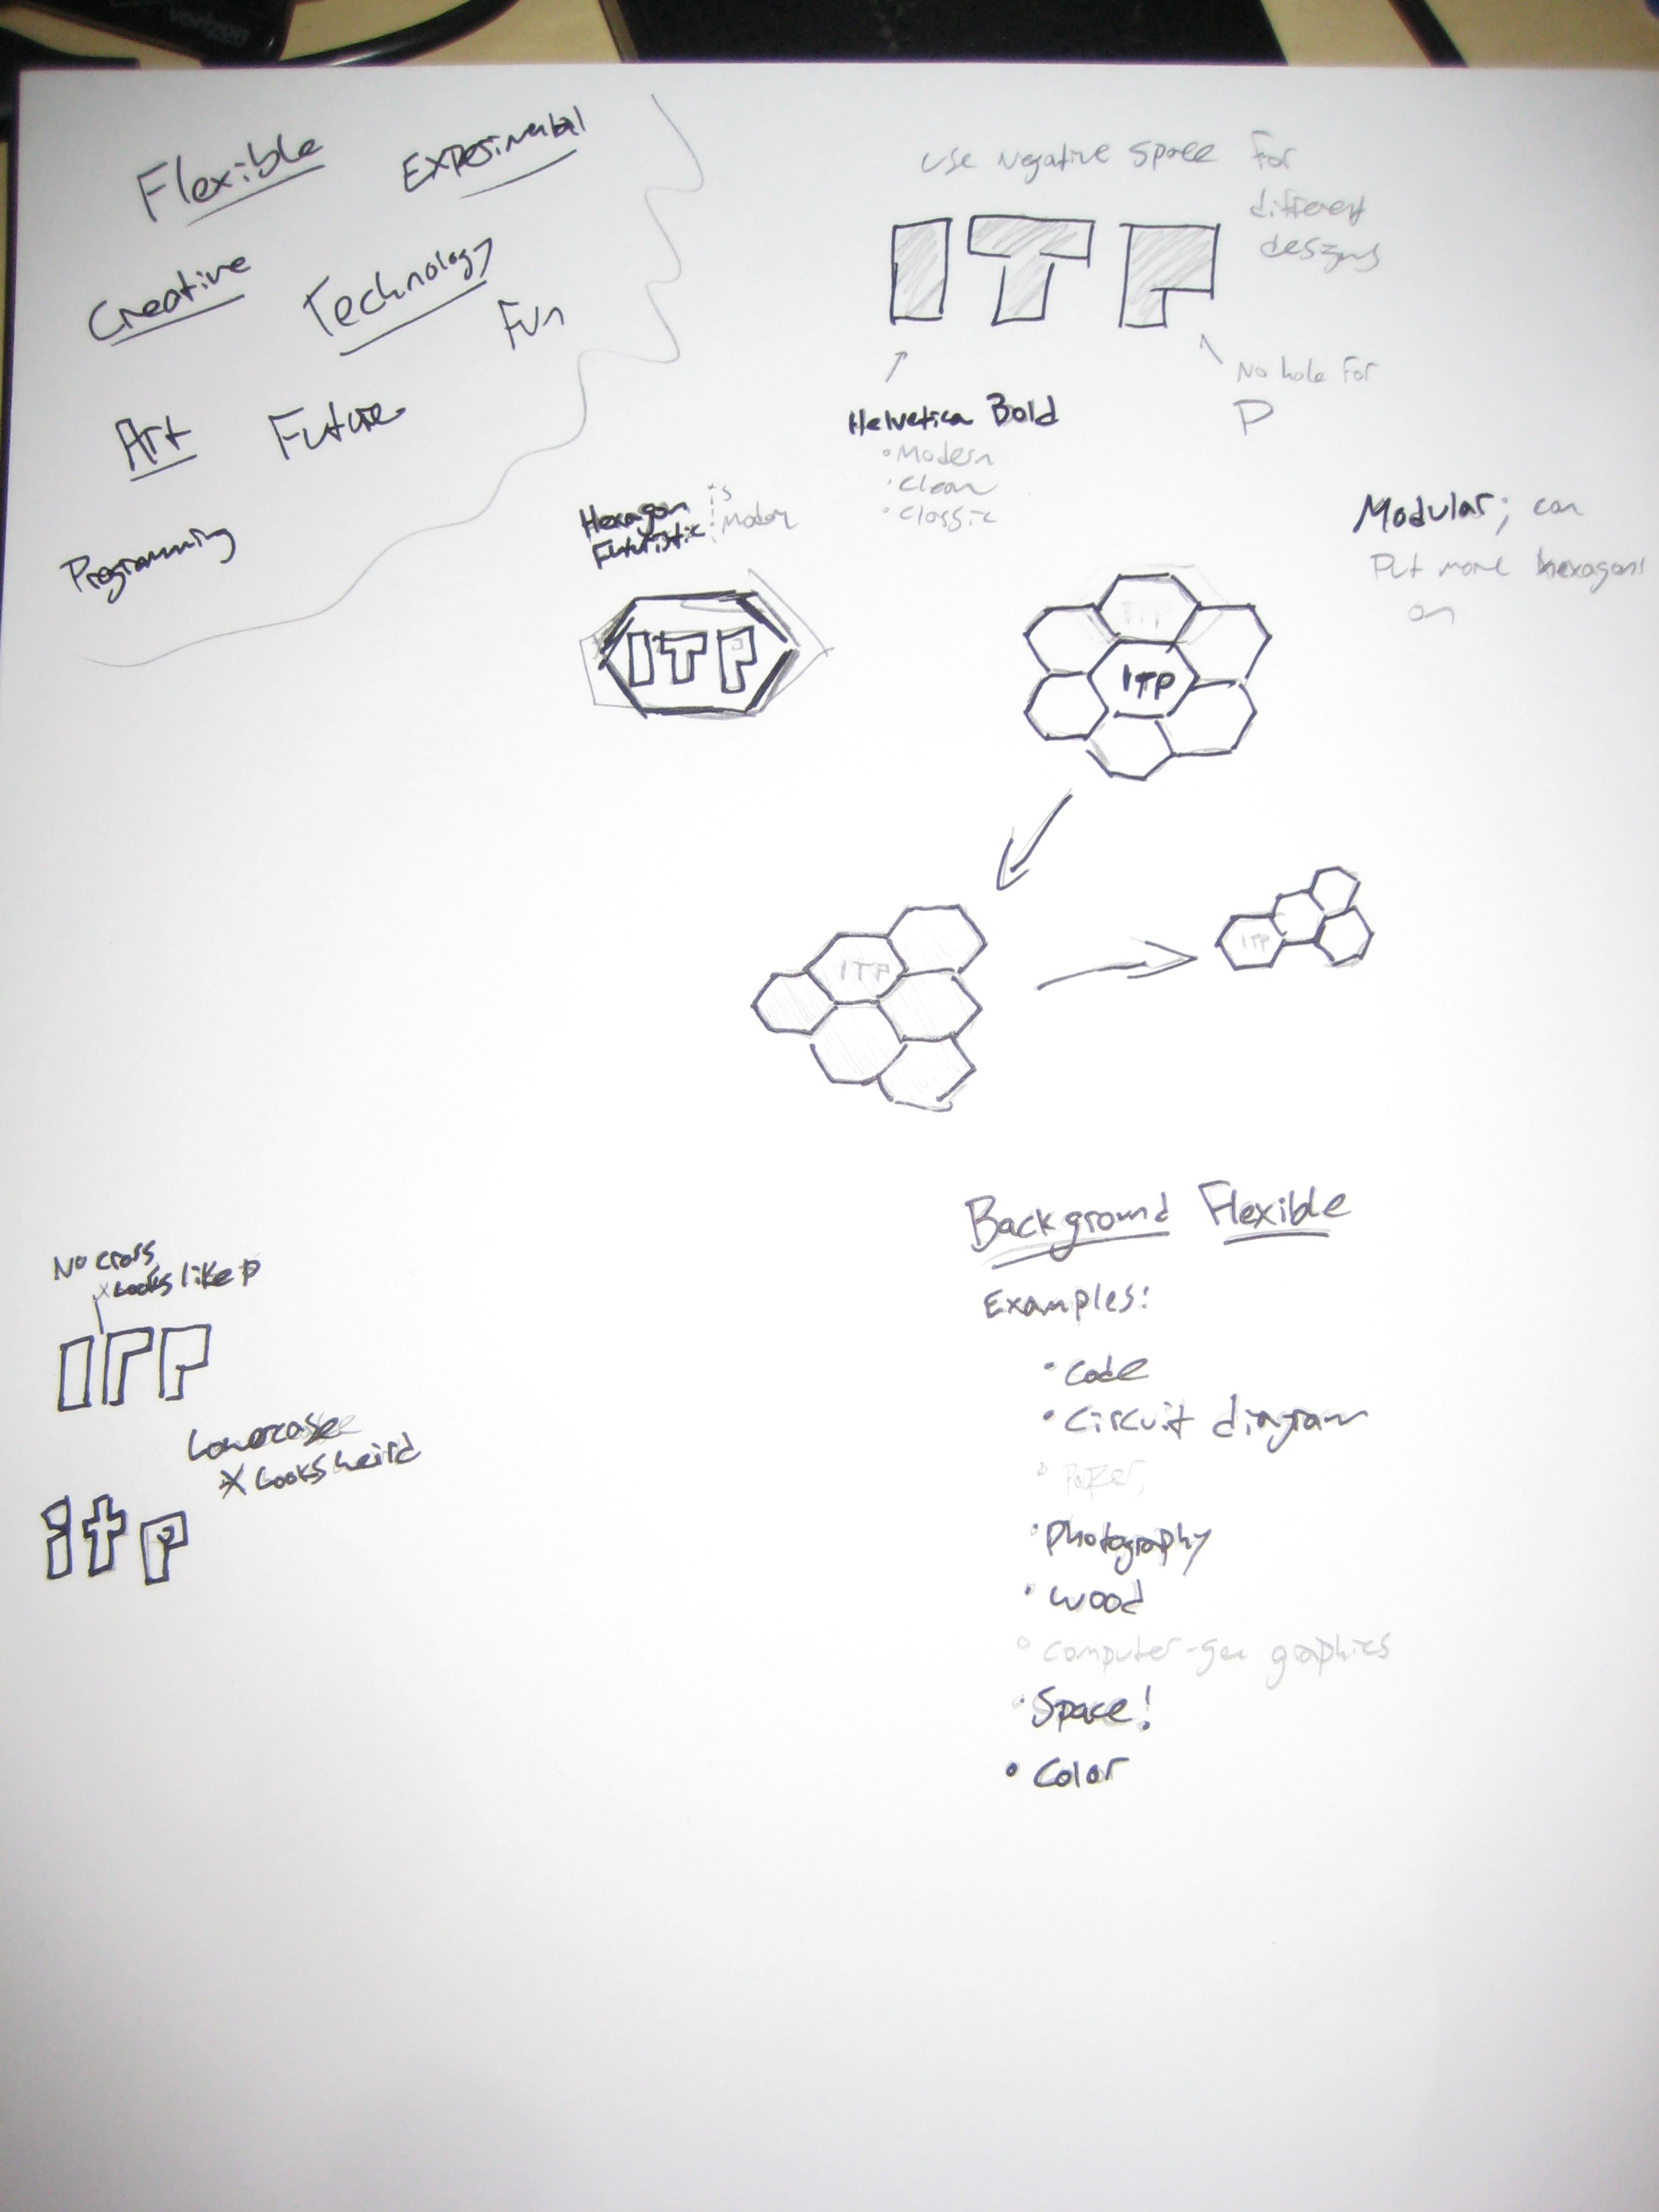 verizon
Flexible Experimental
Creative Technology
Fun
Art Future
Programming
Use negative space for
different
designs
ITP
No hole for
P
Helvetica Bold
• Modern
• Clean
• Classic
Hexagon is
Futuristic
Modular; can
Put more hexagons
on
ITP
ITP
ITP
ITP
ITP
Background Flexible
Examples:
• Code
• Circuit diagram
• Photography
• Wood
• Computer-gen graphics
• Space!
• Color
No cross
x Looks like p
ITP
Lowercase
X Looks weird
itp